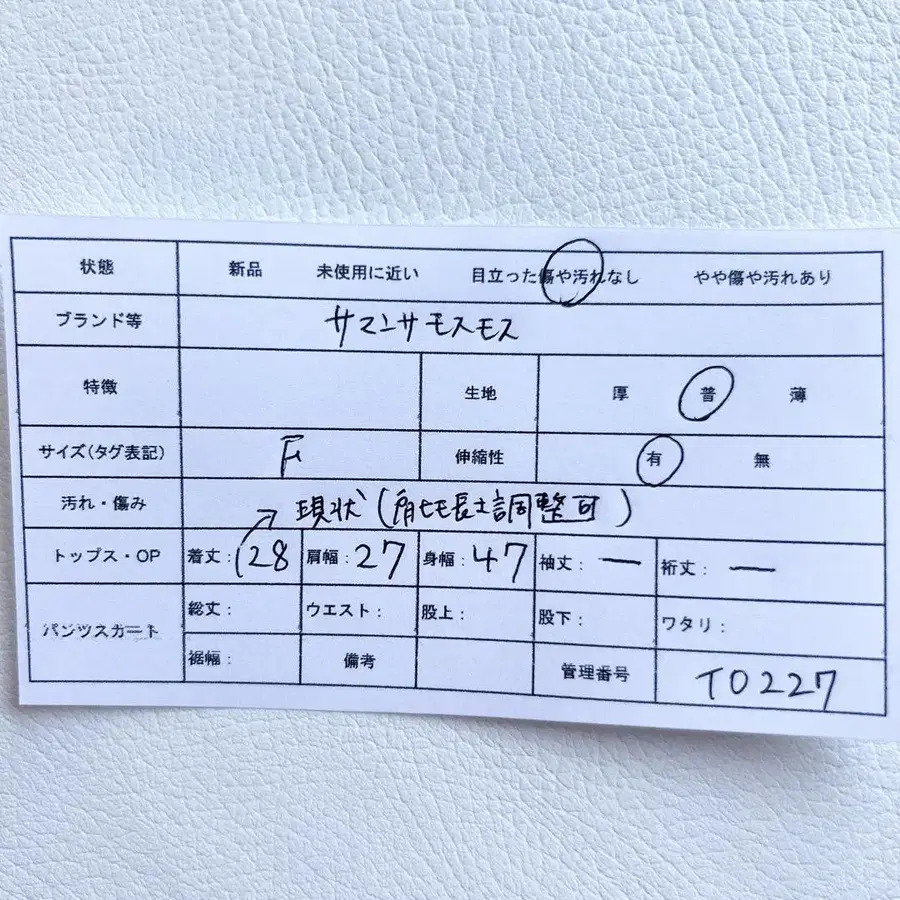 状態 新品 未使用に近い 目立った傷や汚れなし やや傷や汚れあり
ブランド等 サマンサモスモス
特徴 生地 厚 普 薄
サイズ(タグ表記) F 伸縮性 有 無
汚れ・傷み 現状(肩ヒモ長さ調整可)
トップス・OP 着丈:128 肩幅:27 身幅:47 袖丈:ー 裄丈:ー
パンツスカート 総丈: ウエスト: 股上: 股下: ワタリ:
裾幅: 備考 管理番号 TO227